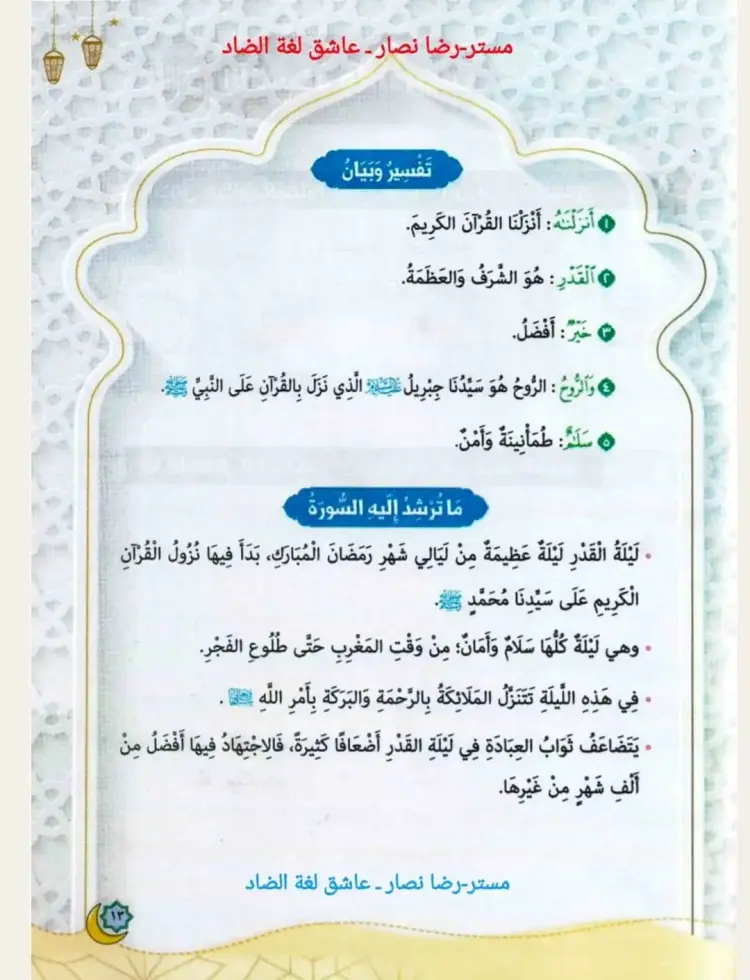 مستر-رضا نصار ـ عاشق لغة الضاد
تَفْسِيرٌ وَبَيَانٌ
١ أَنزَلْنَٰهُ: أَنْزَلْنَا القُرْآنَ الكَرِيمَ.
٢ ٱلْقَدْرِ: هُوَ الشَّرَفُ وَالعَظَمَةُ.
٣ خَيْرٌ: أَفْضَلُ.
٤ وَٱلرُّوحُ: الرُّوحُ هُوَ سَيِّدُنَا جِبْرِيلُ عَلَيْهِ السَّلَامُ الَّذِي نَزَلَ بِالقُرْآنِ عَلَى النَّبِيِّ ﷺ.
٥ سَلَٰمٌ: طُمَأْنِينَةٌ وَأَمْنٌ.
مَا تُرْشِدُ إِلَيهِ السُّورَةُ
• لَيْلَةُ الْقَدْرِ لَيْلَةٌ عَظِيمَةٌ مِنْ لَيَالِي شَهْرِ رَمَضَانَ الْمُبَارَكِ، بَدَأَ فِيهَا نُزُولُ الْقُرْآنِ
الْكَرِيمِ عَلَى سَيِّدِنَا مُحَمَّدٍ ﷺ.
• وهي لَيْلَةٌ كُلُّهَا سَلَامٌ وَأَمَانٌ؛ مِنْ وَقْتِ المَغْرِبِ حَتَّى طُلُوعِ الفَجْرِ.
• فِي هَذِهِ اللَّيلَةِ تَتَنَزَّلُ المَلَائِكَةُ بِالرَّحْمَةِ وَالبَرَكَةِ بِأَمْرِ اللَّهِ .
• يَتَضَاعَفُ ثَوَابُ العِبَادَةِ فِي لَيْلَةِ القَدْرِ أَضْعَافًا كَثِيرَةً، فَالِاجْتِهَادُ فِيهَا أَفْضَلُ مِنْ
أَلْفِ شَهْرٍ مِنْ غَيْرِهَا.
مستر-رضا نصار ـ عاشق لغة الضاد
١٣